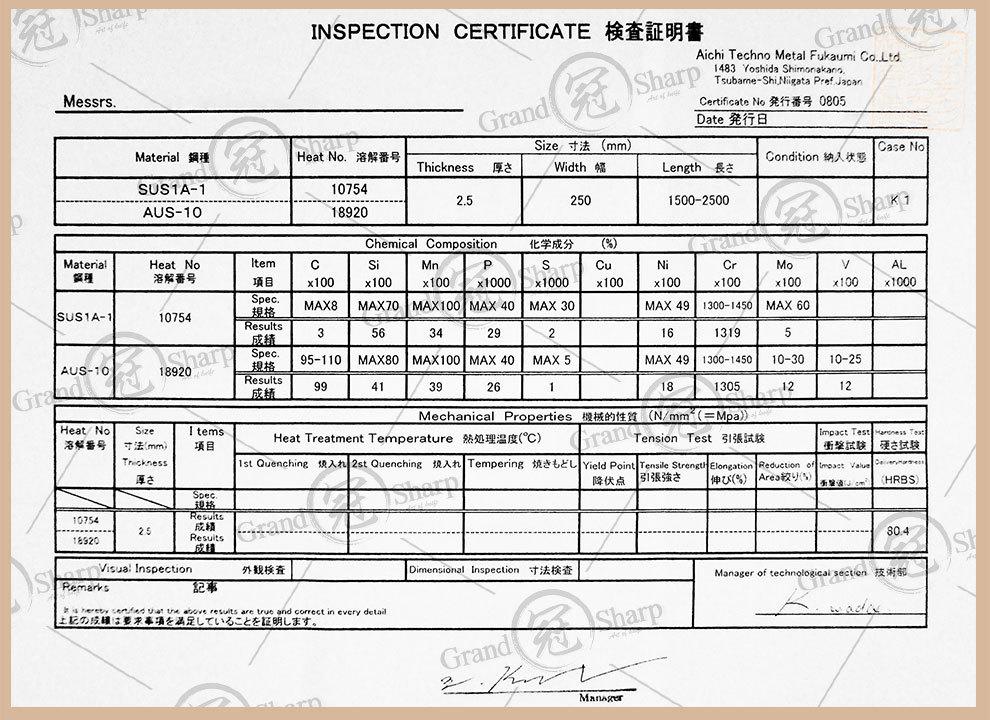 INSPECTION CERTIFICATE 検査証明書
Aichi Techno Metal Fukaumi Co.,Ltd.
1483 Yoshida Shimonakano,
Tsubame-Shi,Niigata Pref.Japan
Messrs.
Certificate No 発行番号 0805
Date 発行日
Material 鋼種 Heat No. 溶解番号 Size 寸法 (mm) Condition 納入状態 Case No
Thickness 厚さ Width 幅 Length 長さ
SUS1A-1 10754 2.5 250 1500-2500 K 1
AUS-10 18920
Chemical Composition 化学成分 (%)
Material Heat No Item C Si Mn P S Cu Ni Cr Mo V AL
鋼種 溶解番号 項目 x100 x100 x100 x1000 x1000 x100 x100 x100 x100 x100 x1000
SUS1A-1 10754 Spec. 規格 MAX8 MAX70 MAX100 MAX 40 MAX 30 MAX 49 1300-1450 MAX 60
Results 成績 3 56 34 29 2 16 1319 5
AUS-10 18920 Spec. 規格 95-110 MAX80 MAX100 MAX 40 MAX 5 MAX 49 1300-1450 10-30 10-25
Results 成績 99 41 39 26 1 18 1305 12 12
Mechanical Properties 機械的性質 (N/mm²(=Mpa))
Heat/No 溶解番号 Size 寸法(mm) Thickness 厚さ Items 項目 Heat Treatment Temperature 熱処理温度(℃) Tension Test 引張試験 Impact Test 衝撃試験 Hardness Test 硬さ試験
1st Quenching 焼入れ 2st Quenching 焼入れ Tempering 焼きもどし Yield Point 降伏点 Tensile Strength 引張強さ Elongation 伸び(%) Reduction of Area絞り(%) Impact Value 衝撃値(J/cm²) (HRBS)
Spec. 規格
10754 2.5 Results 成績 80.4
18920 Results 成績
Visual Inspection 外観検査 Dimensional Inspection 寸法検査 Manager of technological section 技術部
Remarks 記事
It is hereby certified that the above results are true and correct in every detail
上記の成績は要求事項を満足していることを証明します。
Manager
Grand 冠 Sharp
Art of knife